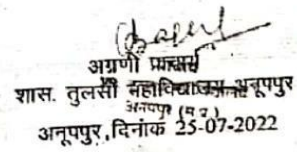 अग्रणी प्राचार्य
शास. तुलसी महाविद्यालय अनूपपुर
अनूपपुर (म.प्र.)
अनूपपुर, दिनांक 25-07-2022